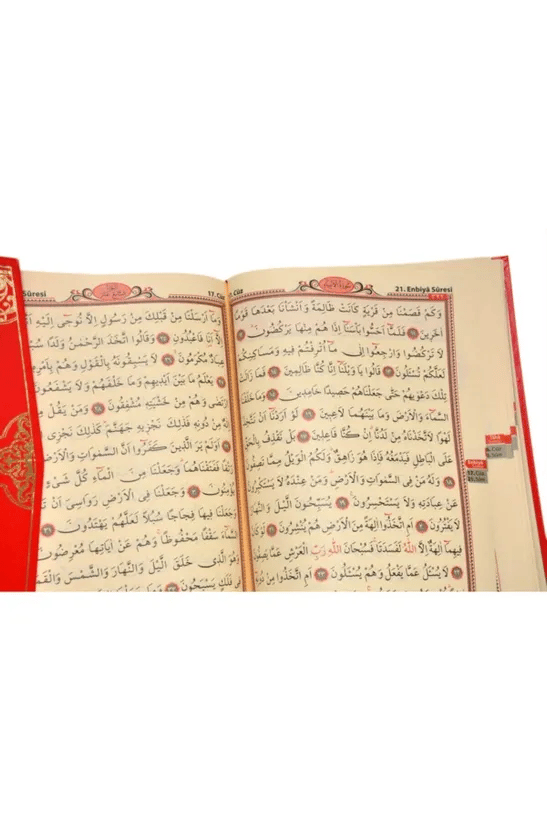 21. Enbiyâ Sûresi
سُورَةُ الْاَنْبِيَاءِ
. Cüz
وَكَمْ قَصَمْنَا مِنْ قَرْيَةٍ كَانَتْ ظَالِمَةً وَاَنْشَأْنَا بَعْدَهَا قَوْمًا
اٰخَرِينَ ﴿١١﴾ فَلَمَّٓا اَحَسُّوا بَأْسَنَٓا اِذَا هُمْ مِنْهَا يَرْكُضُونَ ﴿١٢﴾
لَا تَرْكُضُوا وَارْجِعُٓوا اِلٰى مَٓا اُتْرِفْتُمْ فِيهِ وَمَسَاكِنِكُمْ
لَعَلَّكُمْ تُسْـَٔلُونَ ﴿١٣﴾ قَالُوا يَا وَيْلَنَٓا اِنَّا كُنَّا ظَالِمِينَ ﴿١٤﴾ فَمَا زَالَتْ
تِلْكَ دَعْوٰيهُمْ حَتّٰى جَعَلْنَاهُمْ حَصِيدًا خَامِدِينَ ﴿١٥﴾ وَمَا خَلَقْنَا
السَّمَٓاءَ وَالْاَرْضَ وَمَا بَيْنَهُمَا لَاعِبِينَ ﴿١٦﴾ لَوْ اَرَدْنَٓا اَنْ نَتَّخِذَ
لَهْوًا لَاتَّخَذْنَاهُ مِنْ لَدُنَّٓا اِنْ كُنَّا فَاعِلِينَ ﴿١٧﴾ بَلْ نَقْذِفُ بِالْحَقِّ
عَلَى الْبَاطِلِ فَيَدْمَغُهُ فَاِذَا هُوَ زَاهِقٌ وَلَكُمُ الْوَيْلُ مِمَّا تَصِفُونَ
﴿١٨﴾ وَلَهُ مَنْ فِي السَّمٰوَاتِ وَالْاَرْضِ وَمَنْ عِنْدَهُ لَا يَسْتَكْبِرُونَ
عَنْ عِبَادَتِهِ وَلَا يَسْتَحْسِرُونَ ﴿١٩﴾ يُسَبِّحُونَ الَّيْلَ وَالنَّهَارَ
لَا يَفْتُرُونَ ﴿٢٠﴾ اَمِ اتَّخَذُٓوا اٰلِهَةً مِنَ الْاَرْضِ هُمْ يُنْشِرُونَ ﴿٢١﴾ لَوْ كَانَ
فِيهِمَٓا اٰلِهَةٌ اِلَّا اللّٰهُ لَفَسَدَتَا فَسُبْحَانَ اللّٰهِ رَبِّ الْعَرْشِ عَمَّا يَصِفُونَ
﴿٢٢﴾ لَا يُسْـَٔلُ عَمَّا يَفْعَلُ وَهُمْ يُسْـَٔلُونَ ﴿٢٣﴾ اَمِ اتَّخَذُوا مِنْ دُونِهِ
Sûresi
17. Cüz
وَمَٓا اَرْسَلْنَا مِنْ قَبْلِكَ مِنْ رَسُولٍ اِلَّا نُوحِٓي اِلَيْهِ اَنَّهُ
اِلَّٓا اَنَا۬ فَاعْبُدُونِ ﴿٢٥﴾ وَقَالُوا اتَّخَذَ الرَّحْمٰنُ وَلَدًا سُبْحَانَهُ
مُكْرَمُونَ ﴿٢٦﴾ لَا يَسْبِقُونَهُ بِالْقَوْلِ وَهُمْ بِاَمْرِهِ
﴿٢٧﴾ يَعْلَمُ مَا بَيْنَ اَيْدِيهِمْ وَمَا خَلْفَهُمْ وَلَا يَشْفَعُونَ
ارْتَضٰى وَهُمْ مِنْ خَشْيَتِهِ مُشْفِقُونَ ﴿٢٨﴾ وَمَنْ يَقُلْ مِنْهُمْ
اِلٰهٌ مِنْ دُونِهِ فَذٰلِكَ نَجْزِيهِ جَهَنَّمَ كَذٰلِكَ نَجْزِي
﴿٢٩﴾ اَوَلَمْ يَرَ الَّذِينَ كَفَرُٓوا اَنَّ السَّمٰوَاتِ وَالْاَرْضَ
رَتْقًا فَفَتَقْنَاهُمَا وَجَعَلْنَا مِنَ الْمَٓاءِ كُلَّ شَيْءٍ
يُؤْمِنُونَ ﴿٣٠﴾ وَجَعَلْنَا فِي الْاَرْضِ رَوَاسِيَ اَنْ تَمِيدَ
وَجَعَلْنَا فِيهَا فِجَاجًا سُبُلًا لَعَلَّهُمْ يَهْتَدُونَ ﴿٣١﴾
السَّمَٓاءَ سَقْفًا مَحْفُوظًا وَهُمْ عَنْ اٰيَاتِهَا مُعْرِضُونَ
وَهُوَ الَّذِي خَلَقَ الَّيْلَ وَالنَّهَارَ وَالشَّمْسَ وَالْقَمَرَ
فِي فَلَكٍ يَسْبَحُونَ ﴿٣٣﴾
Enbiya
17. Cüz